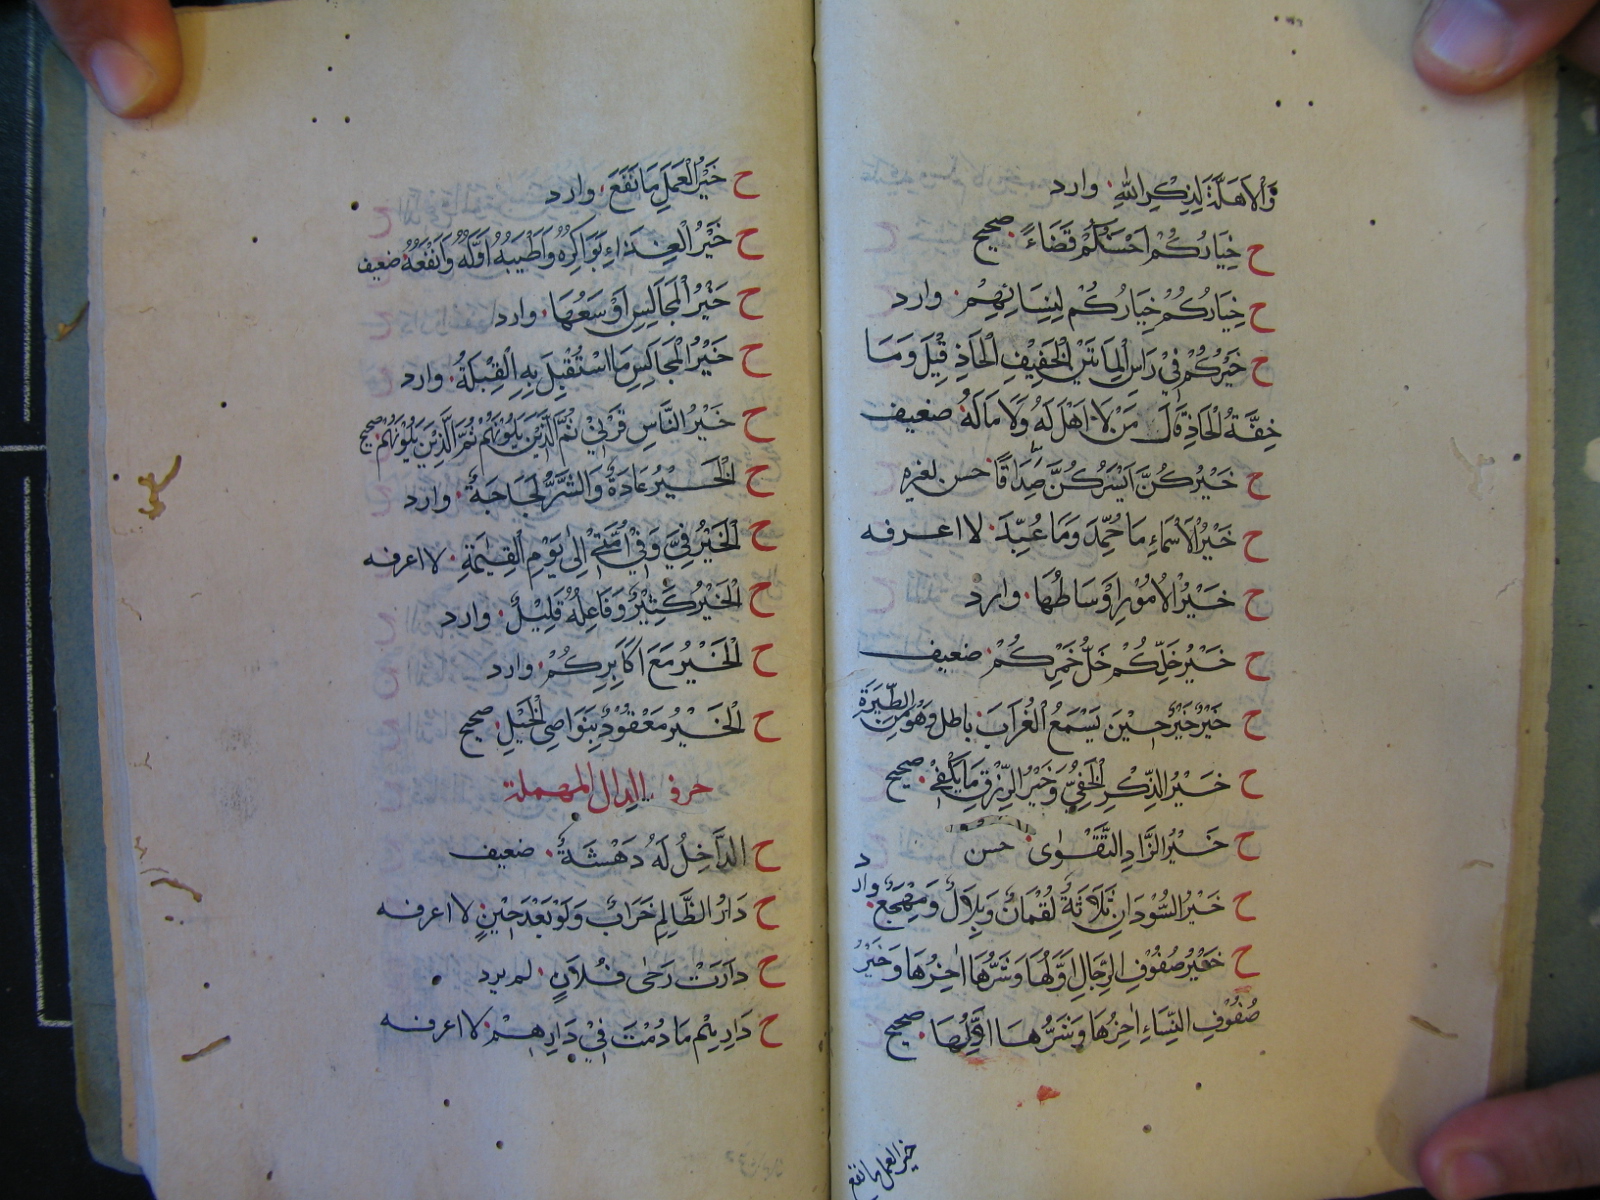 وَالْاَهِلَّةَ لِذِكْرِ اللهِ. وارد
ح خِيَارُكُمْ اَحْسَنُكُمْ قَضَاءً. صحيح
ح خِيَارُكُمْ خِيَارُكُمْ لِنِسَائِهِمْ. وارد
ح خَيْرُكُمْ فِيْ رَاْسِ الْمِائَتَيْنِ الْخَفِيْفُ الْحَاذِ قِيْلَ وَمَا
خِفَّةُ الْحَاذِ قَالَ مَنْ لَا اَهْلَ لَهُ وَلَا مَالَ لَهُ. ضعيف
ح خَيْرُكُنَّ اَيْسَرُكُنَّ صَدَاقًا. حسن لغيره
ح خَيْرُ الْاَسْمَاءِ مَا حُمِّدَ وَمَا عُبِّدَ. لا اعرفه
ح خَيْرُ الْاُمُوْرِ اَوْسَاطُهَا. وارد
ح خَيْرُ خَلِّكُمْ خَلُّ خَمْرِكُمْ. ضعيف
ح خَيْرٌ خَيْرٌ حِيْنَ يَسْمَعُ الْغُرَابَ. باطل وَهُوَ مِنَ الطِّيَرَةِ
ح خَيْرُ الذِّكْرِ الْخَفِيُّ وَخَيْرُ الرِّزْقِ مَا يَكْفِيْ. صحيح
ح خَيْرُ الزَّادِ التَّقْوٰى. حسن
ح خَيْرُ السُّوْدَانِ ثَلَاثَةٌ لُقْمَانُ وَبِلَالٌ وَمِهْجَعٌ. وارد
ح خَيْرُ صُفُوْفِ الرِّجَالِ اَوَّلُهَا وَشَرُّهَا اٰخِرُهَا وَخَيْرُ
صُفُوْفِ النِّسَاءِ اٰخِرُهَا وَشَرُّهَا اَوَّلُهَا. صحيح
خير العمل ما نفع
ح خَيْرُ الْعَمَلِ مَا نَفَعَ. وارد
ح خَيْرُ الْغِذَاءِ بَوَاكِرُهُ وَاَطْيَبُهُ اَوَّلُهُ وَاَنْفَعُهُ. ضعيف
ح خَيْرُ الْمَجَالِسِ اَوْسَعُهَا. وارد
ح خَيْرُ الْمَجَالِسِ مَا اسْتُقْبِلَ بِهِ الْقِبْلَةُ. وارد
ح خَيْرُ النَّاسِ قَرْنِيْ ثُمَّ الَّذِيْنَ يَلُوْنَهُمْ ثُمَّ الَّذِيْنَ يَلُوْنَهُمْ. صحيح
ح الْخَيْرُ عَادَةٌ وَالشَّرُّ لَجَاجَةٌ. وارد
ح الْخَيْرُ فِيَّ وَفِيْ اُمَّتِيْ اِلٰى يَوْمِ الْقِيٰمَةِ. لا اعرفه
ح الْخَيْرُ كَثِيْرٌ وَفَاعِلُهُ قَلِيْلٌ. وارد
ح الْخَيْرُ مَعَ اَكَابِرِكُمْ. وارد
ح الْخَيْرُ مَعْقُوْدٌ بِنَوَاصِي الْخَيْلِ. صحيح
حرف الدال المهملة
ح الدَّاخِلُ لَهُ دَهْشَةٌ. ضعيف
ح دَارُ الظَّالِمِ خَرَابٌ وَلَوْ بَعْدَ حِيْنٍ. لا اعرفه
ح دَارَتْ رَحٰى فُلَانٍ. لم يرد
ح دَارِيْهِمْ مَا دُمْتَ فِيْ دَارِهِمْ. لا اعرفه